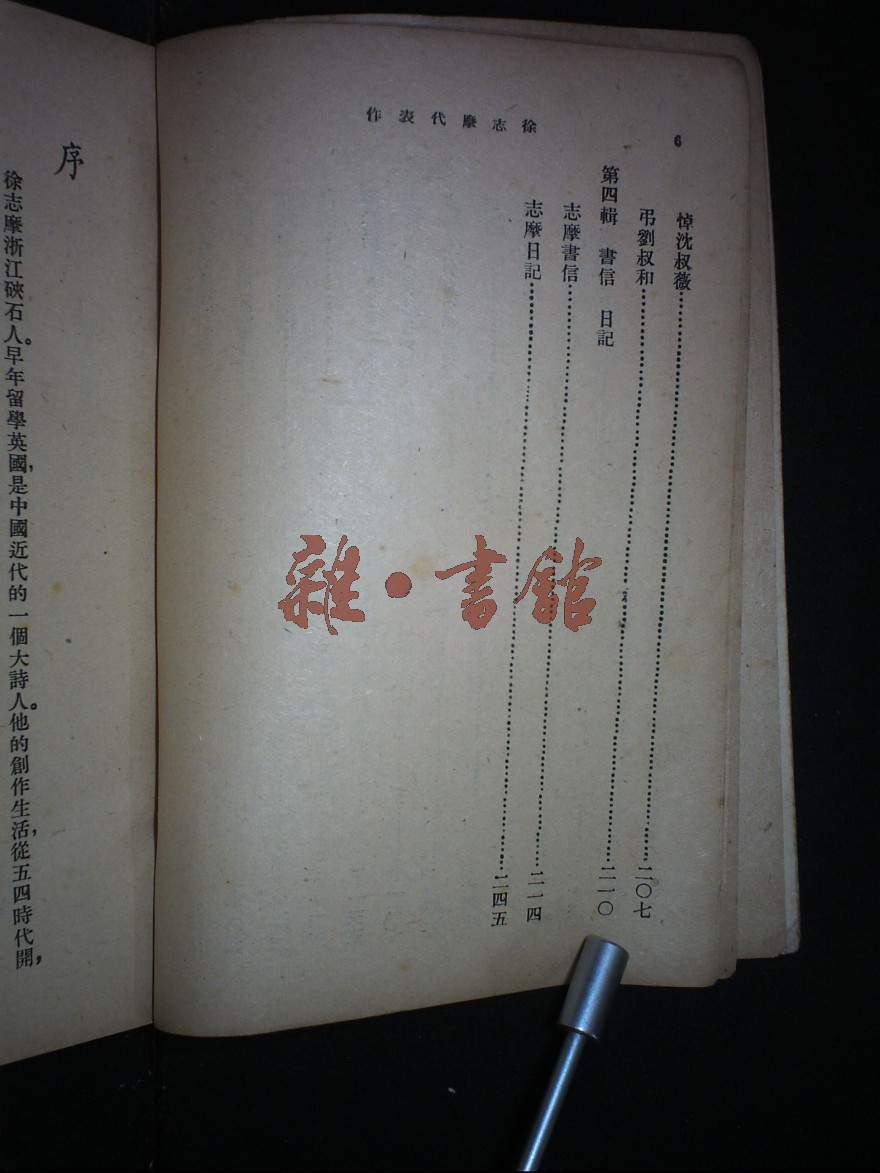 6
徐志摩代表作
悼沈叔薇⋯⋯二〇七
弔劉叔和⋯⋯二一〇
第四輯 書信 日記
志摩書信⋯⋯二一四
志摩日記⋯⋯二四五
雜·書館
序
徐志摩浙江硤石人。早年留學英國,是中國近代的一個大詩人。他的創作生活,從五四時代開,